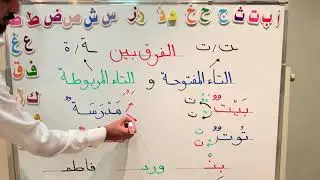 أ ب ت ث ج ح خ د ذ ر ز س ش ص ض ط ظ
ع غ
ف ق
الفرق بين
ت / ـت
ـة / ة
التاء المفتوحة و التاء المربوطة
بَيْتٌ
مَدْرَسَةٌ
تُوتٌ
بِنْـ
ورد
فاطمـ